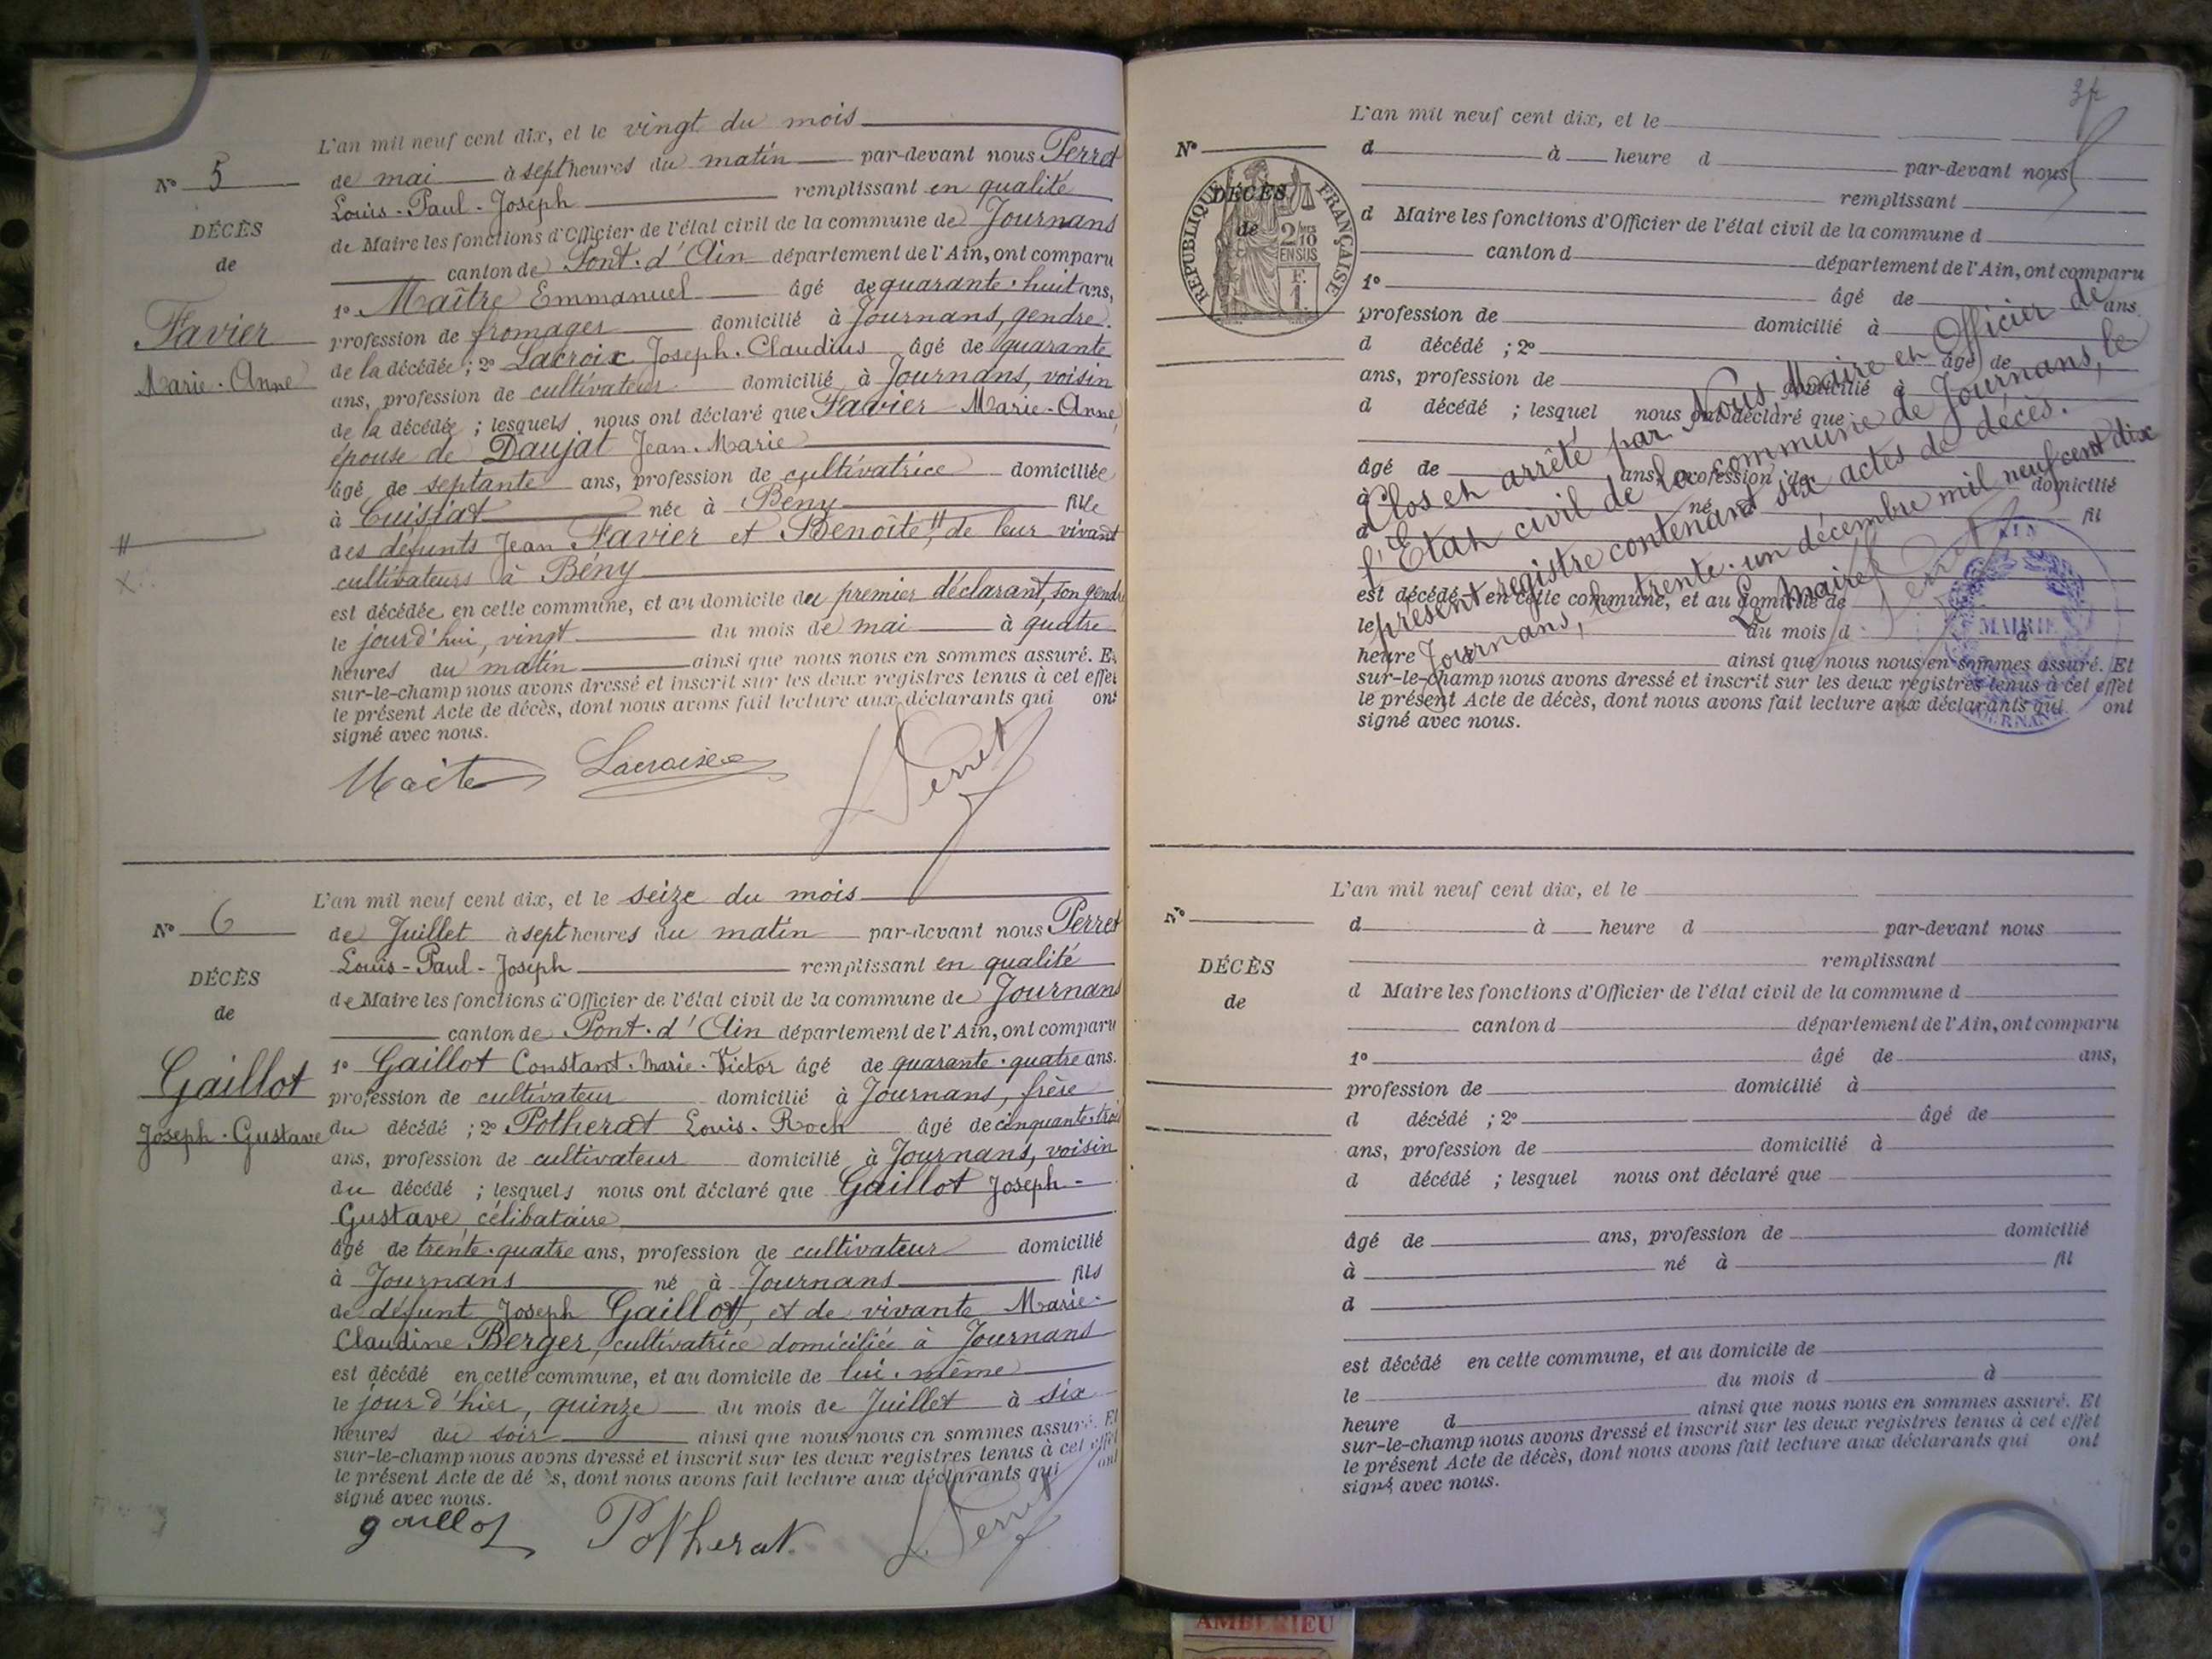 L'an mil neuf cent dix, et le vingt du mois
N° 5
de mai à sept heures du matin par-devant nous Perret
Louis-Paul-Joseph remplissant en qualité
DÉCÈS
de Maire les fonctions d'Officier de l'état civil de la commune de Journans
de
canton de Pont-d'Ain département de l'Ain, ont comparu
1° Maître Emmanuel âgé de quarante-huit ans,
Favier
profession de fromager domicilié à Journans, gendre
Marie-Anne
de la décédée ; 2° Lacroix Joseph-Claudius âgé de quarante
ans, profession de cultivateur domicilié à Journans, voisin
de la décédée ; lesquels nous ont déclaré que Favier Marie-Anne,
épouse de Daujat Jean-Marie
âgé de septante ans, profession de cultivatrice domiciliée
à Cuisiat née à Bény fille
des défunts Jean Favier et Benoîte #, de leur vivant
#
cultivateurs à Bény
X
est décédée en cette commune, et au domicile du premier déclarant, son gendre
le jour d'hui, vingt du mois de mai à quatre
heures du matin ainsi que nous nous en sommes assuré. Et
sur-le-champ nous avons dressé et inscrit sur les deux registres tenus à cet effet
le présent Acte de décès, dont nous avons fait lecture aux déclarants qui ont
signé avec nous.
Maître Lacroix Perret
L'an mil neuf cent dix, et le seize du mois
N° 6
de Juillet à sept heures du matin par-devant nous Perret
Louis-Paul-Joseph remplissant en qualité
DÉCÈS
de Maire les fonctions d'Officier de l'état civil de la commune de Journans
de
canton de Pont-d'Ain département de l'Ain, ont comparu
1° Gaillot Constant-Marie-Victor âgé de quarante-quatre ans.
Gaillot
profession de cultivateur domicilié à Journans, frère
Joseph-Gustave
du décédé ; 2° Potherat Louis-Roch âgé de cinquante-trois
ans, profession de cultivateur domicilié à Journans, voisin
du décédé ; lesquels nous ont déclaré que Gaillot Joseph-
Gustave, célibataire
âgé de trente-quatre ans, profession de cultivateur domicilié
à Journans né à Journans fils
de défunt Joseph Gaillot, et de vivante Marie-
Claudine Berger, cultivatrice domiciliée à Journans
est décédé en cette commune, et au domicile de lui-même
le jour d'hier, quinze du mois de Juillet à six
heures du soir ainsi que nous nous en sommes assuré. Et
sur-le-champ nous avons dressé et inscrit sur les deux registres tenus à cet effet
le présent Acte de dé s, dont nous avons fait lecture aux déclarants qui ont
signé avec nous.
gaillot Potherat Perret
L'an mil neuf cent dix, et le
N°
d à heure d par-devant nous
remplissant
DÉCÈS
de
RÉPUBLIQUE FRANÇAISE
2/10 MES
EN SUS
F.
1.
d Maire les fonctions d'Officier de l'état civil de la commune d
canton d département de l'Ain, ont comparu
1° âgé de ans
profession de domicilié à
d décédé ; 2° âgé de
ans, profession de domicilié à
d décédé ; lesquel nous ont déclaré que
âgé de ans, profession de domicilié
à né à fil
d
est décédé en cette commune, et au domicile de
le du mois d à
heure d ainsi que nous nous en sommes assuré. Et
sur-le-champ nous avons dressé et inscrit sur les deux registres tenus à cet effet
le présent Acte de décès, dont nous avons fait lecture aux déclarants qui ont
signé avec nous.
Clos et arrêté par Nous, Maire et Officier de
l'Etat civil de la commune de Journans, le
présent registre contenant six actes de décès.
Journans, le trente-un décembre mil neuf cent dix
Le Maire
Perret
MAIRIE
AIN
JOURNANS
L'an mil neuf cent dix, et le
N°
d à heure d par-devant nous
remplissant
DÉCÈS
d Maire les fonctions d'Officier de l'état civil de la commune d
de
canton d département de l'Ain, ont comparu
1° âgé de ans,
profession de domicilié à
d décédé ; 2° âgé de
ans, profession de domicilié à
d décédé ; lesquel nous ont déclaré que
âgé de ans, profession de domicilié
à né à fil
d
est décédé en cette commune, et au domicile de
le du mois d à
heure d ainsi que nous nous en sommes assuré. Et
sur-le-champ nous avons dressé et inscrit sur les deux registres tenus à cet effet
le présent Acte de décès, dont nous avons fait lecture aux déclarants qui ont
signé avec nous.
AMBERIEU